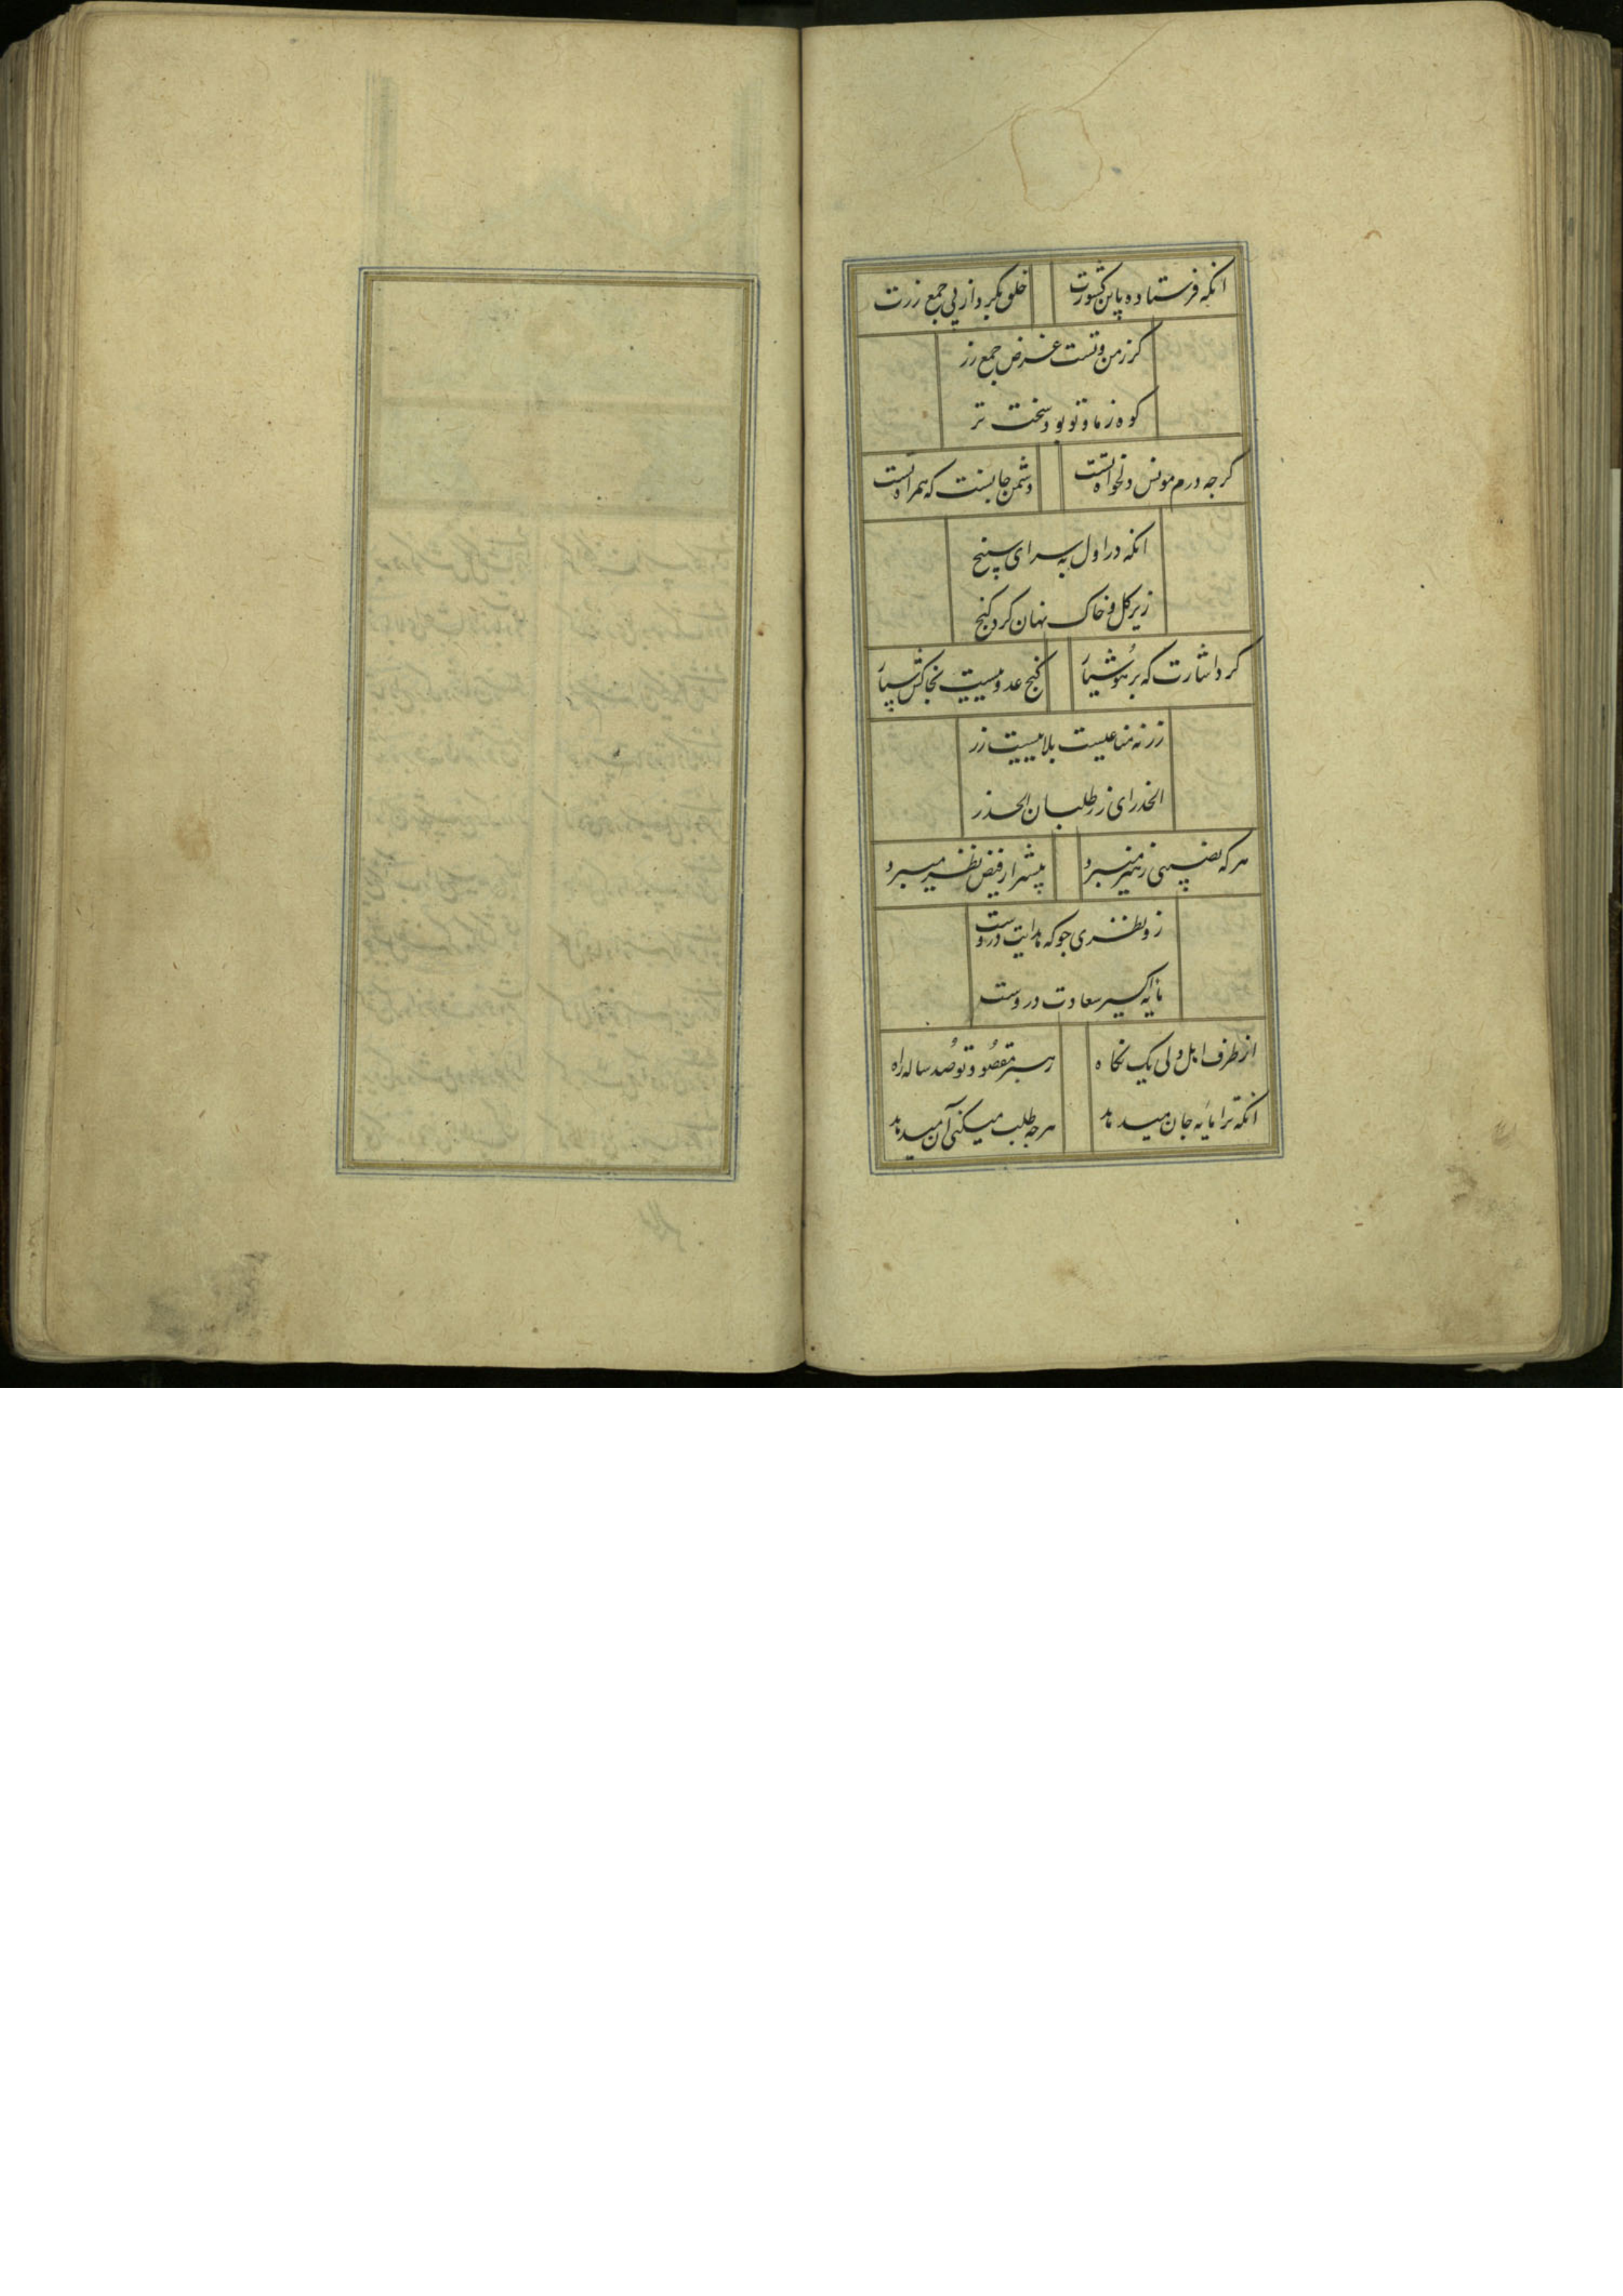 انکه فرستاده باین کشورت    خلق نکرد از پی جمع زرت
کر ز من و تست غرض جمع زر
کوه ز ما و تو بود سخت تر
کرچه درم مونس دلخواه تست    دشمن جانیست که همراه تست
انکه در اول به سرای سپنج
زیر کل و خاک نهان کرد کنج
کرد اشارت که بر هوشیار    کنج عدوییست بخاکش سپار
زر نه متاعیست بلاییست زر
الحذر ای زر طلبان الحذر
هر که نصیبی ز هنر میبرد    بیشتر از فیض نظر میبرد
زو نظری جو که هدایت دروست
مایه اکسیر سعادت دروست
از طرف اهل دلی یک نکاه    رهبر مقصود تو صد ساله راه
انکه ترا مایه جان میدهد    هرچه طلب میکنی آن میدهد